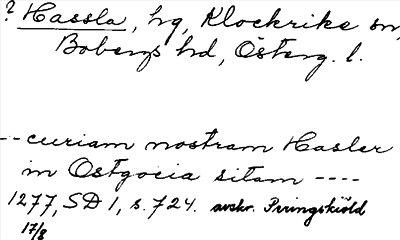 ? Hassla, hg, Klockrike sn,
Bobergs hd, Österg. l.
-- curiam nostram Hasler
in Ostgocia sitam ----
1277, SD 1, s. 724. avskr. Peringskiöld
17/8